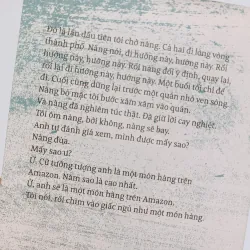 Đó là lần đầu tiên tôi chở nàng. Cả hai đi lang vòng
thành phố. Nàng nói, đi hướng này, hướng này. Rồi
hướng này, hướng này. Rồi nàng đổi ý định, quay lại,
rồi lại đi hướng này, hướng này. Một buổi tối chỉ để
đi. Cuối cùng dừng lại trước một quán nhỏ ven sông.
Nàng bỏ mặc tôi bước xăm xăm vào quán.
Và nàng đã nghiêm túc thật. Đã giữ lời cay nghiệt.
Tôi ôm nàng, bởi không, nàng sẽ bay.
Anh tự đánh giá xem, mình được mấy sao?
Nàng đùa.
Mấy sao ư?
Ừ. Cứ tưởng tượng anh là một món hàng trên
Amazon. Năm sao là cao nhất.
Ừ, anh sẽ là một món hàng trên Amazon.
Tôi nói, rồi chìm vào giấc ngủ như một món hàng.